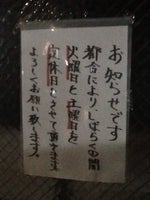 お知らせです
都合によりしばらくの間
火曜日と土曜日を
定休日とさせて頂きます
よろしくお願い致します。